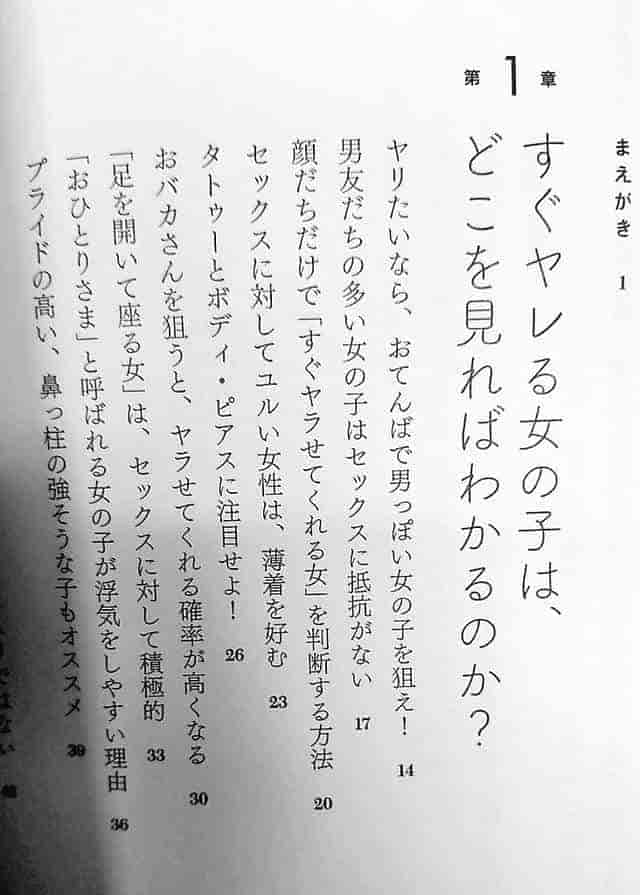 まえがき 1
第1章
すぐヤレる女の子は、
どこを見ればわかるのか？
ヤリたいなら、おてんばで男っぽい女の子を狙え！ 14
男友だちの多い女の子はセックスに抵抗がない 17
顔だちだけで「すぐヤラせてくれる女」を判断する方法 20
セックスに対してユルい女性は、薄着を好む 23
タトゥーとボディ・ピアスに注目せよ！ 26
おバカさんを狙うと、ヤラせてくれる確率が高くなる 30
「足を開いて座る女」は、セックスに対して積極的 33
「おひとりさま」と呼ばれる女の子が浮気をしやすい理由 36
プライドの高い、鼻っ柱の強そうな子もオススメ 39
ではない